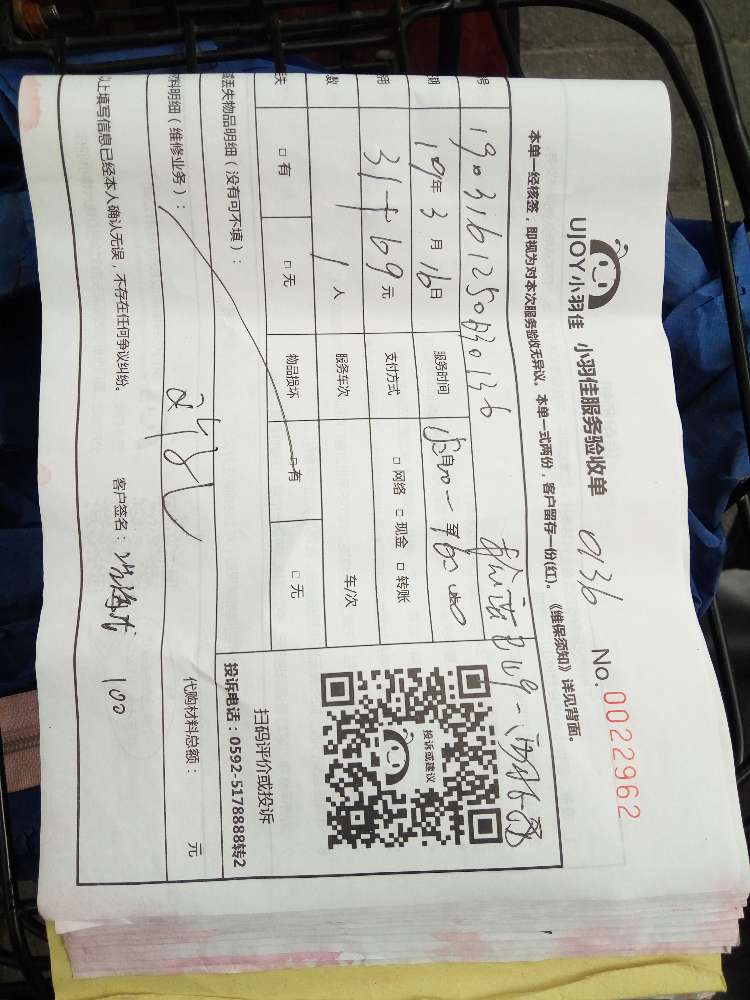 UJOY小羽佳 小羽佳服务验收单 0136 No. 0022962
本单一经核签，即视为对本次服务验收无异议。本单一式两份，客户留存一份(红)。《维保须知》详见背面。
号
期 19年3月16日 服务时间
元 支付方式 □ 网络 □ 现金 □ 转账
数 1人 服务车次 车/次
失 □ 有 □ 无 物品损坏 □ 有 □ 无
丢失物品明细（没有可不填）：
料明细（维修业务）：
代购材料总额： 元
以上填写信息已经本人确认无误，不存在任何争议纠纷。
客户签名： 100
投诉或建议
扫码评价或投诉
投诉电话：0592-5178888转2